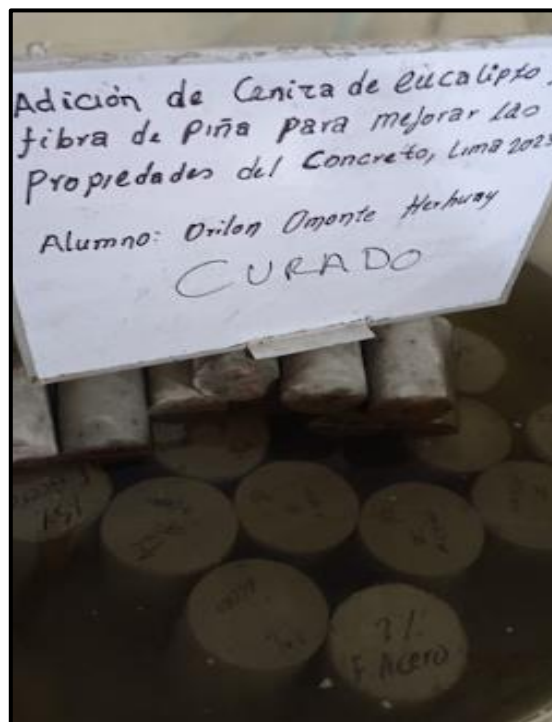 Adición de Ceniza de eucalipto,
fibra de Piña para mejorar las
Propiedades del Concreto, Lima 2023
Alumno: Orilon Omonte Herhuay
CURADO
F. Acero